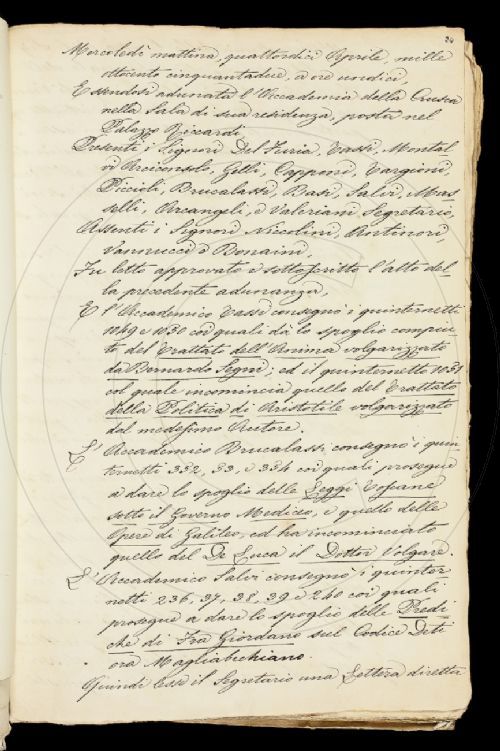 24
Mercoledì mattina, quattordici Aprile, mille
ottocento cinquantadue, a ore undici,
Essendosi adunata l'Accademia della Crusca
nella Sala di sua residenza, posta nel
Palazzo Riccardi,
Presenti i Signori Del Furia, Tassi, Montal
vi Arciconsolo, Gelli, Capponi, Targioni,
Piccioli, Brucalassi, Busi, Salvi, Mas=
selli, Arcangeli, e Valeriani Segretario,
Assenti i Signori Niccolini, Antinori,
Vannucci e Bonaini,
Fu letto approvato e sottoscritto l'atto del=
la precedente adunanza,
E l'Accademico Tassi consegnò i quinternetti
1049 e 1050 coi quali dà lo spoglio compiu=
to del Trattato dell'Anima volgarizzato
da Bernardo Segni; ed il quinternetto 1051
col quale incomincia quello del Trattato
della Politica di Aristotile volgarizzato
dal medesimo Autore.
L'Accademico Brucalassi consegnò i quin
ternetti 332, 33, e 334 coi quali prosegue
a dare lo spoglio delle Leggi Toscane
sotto il Governo Mediceo, e quello delle
Opere di Galileo, ed ha incominciato
quello del De Luca il Dottor Volgare.
L'Accademico Salvi consegnò i quinter
netti 236, 37, 38, 39 e 240 coi quali
prosegue a dare lo spoglio delle Predi
che di Fra Giordano sul Codice Deti
ora Magliabechiano.
Quindi lesse il Segretario una Lettera diretta